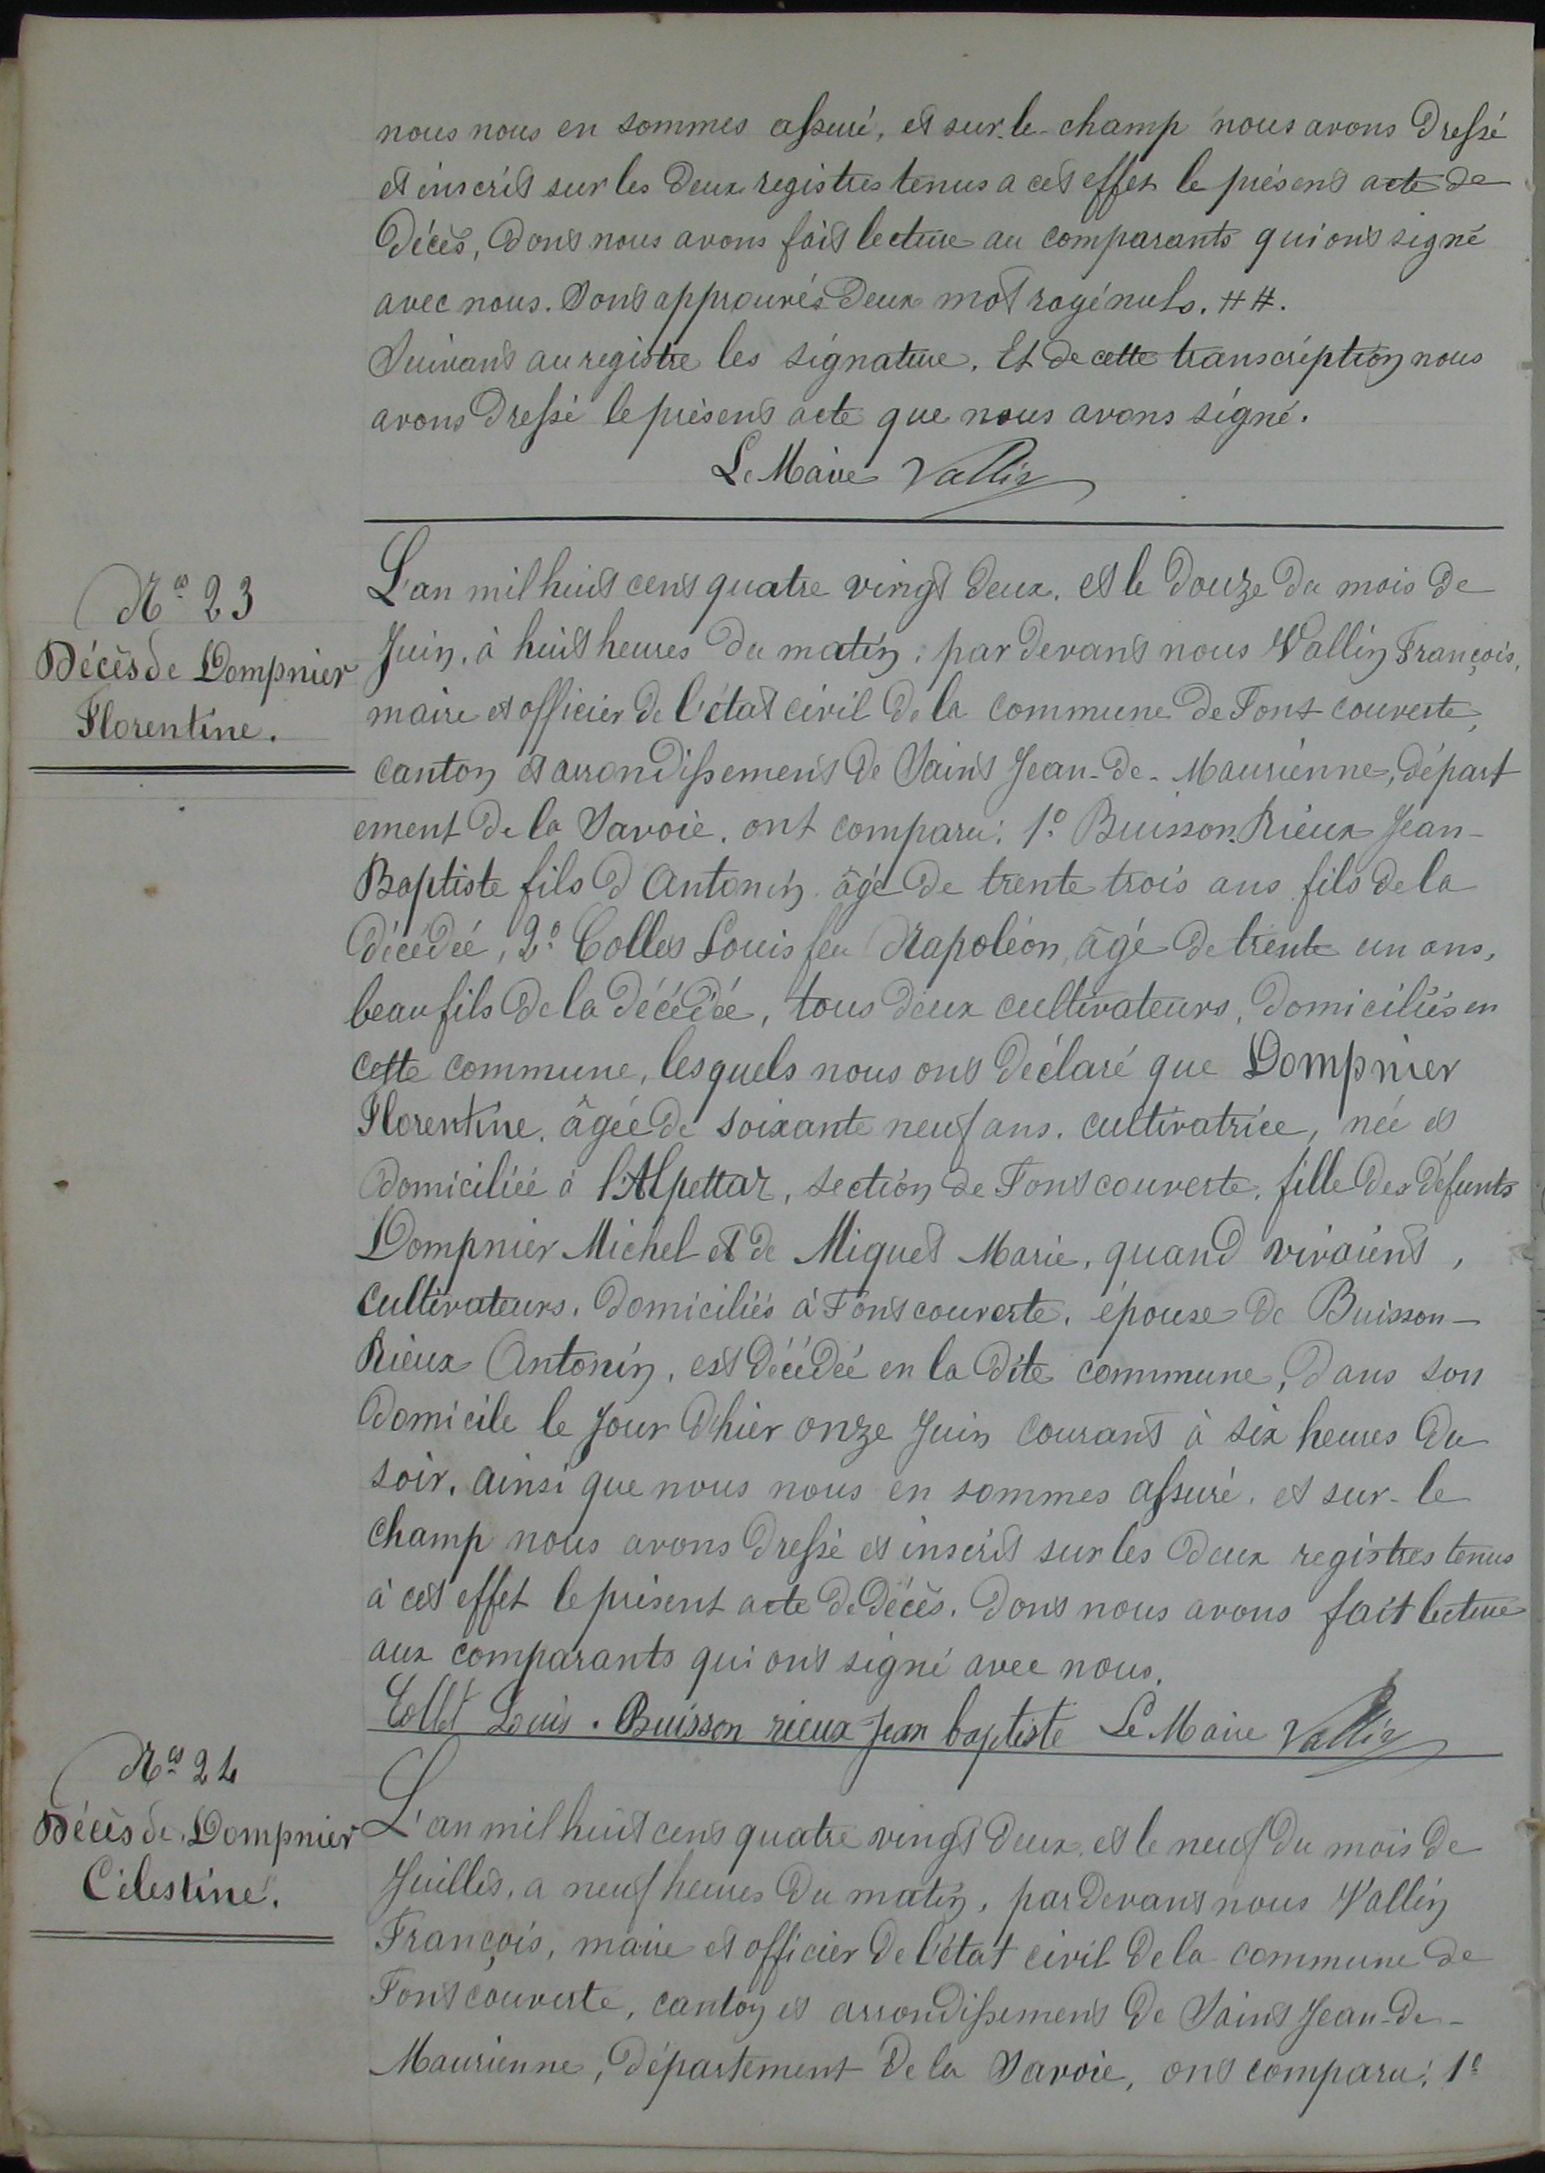 nous nous en sommes assuré, et sur-le-champ nous avons dressé
et inscrit sur les deux registres tenus a cet effet le présent acte de
Décès, dont nous avons fait lecture au comparants qui ont signé
avec nous. Sont approuvés deux mot rayé nuls. ##.
Suivant au registre les signature. Et de cette transcription nous
avons dressé le présent acte que nous avons signé.
Le Maire Vallin
N° 23
Décès de Dompnier
Florentine.
L'an mil huit cent quatre vingt deux, et le douze du mois de
Juin, à huit heures du matin, par devant nous Vallin François,
maire et officier de l'état civil de la commune de Font couverte,
canton et arrondissement de Saint Jean-de-Maurienne, départ
ement de la Savoie, ont comparu: 1° Buisson-Rieux Jean-
Baptiste fils d'Antonin âgé de trente trois ans fils de la
décédée, 2° Collet Louis feu Napoléon, âgé de trente un ans,
beau fils de la décédée, tous deux cultivateurs, domiciliés en
cette commune, lesquels nous ont déclaré que Dompnier
Florentine, âgée de soixante neuf ans, cultivatrice, née et
domiciliée à l'Alpettaz, section de Fontcouverte, fille des défunts
Dompnier Michel et de Miquet Marie, quand vivaient,
cultivateurs, domiciliés à Fontcouverte, épouse de Buisson-
Rieux Antonin, est décédée en la dite commune, dans son
domicile le jour d'hier onze Juin courant à six heures du
soir, ainsi que nous nous en sommes assuré, et sur-le
champ nous avons dressé et inscrit sur les deux registres tenus
à cet effet le présent acte de décès. Dont nous avons fait lecture
aux comparants qui ont signé avec nous.
Collet Louis. Buisson rieux Jean baptiste Le Maire Vallin
N° 24
Décès de Dompnier
Célestine.
L'an mil huit cent quatre vingt deux, et le neuf du mois de
Juillet, a neuf heures du matin, par devant nous Vallin
François, maire et officier de l'état civil de la commune de
Fontcouverte, canton et arrondissement de Saint Jean-de-
Maurienne, département de la Savoie, ont comparu: 1°